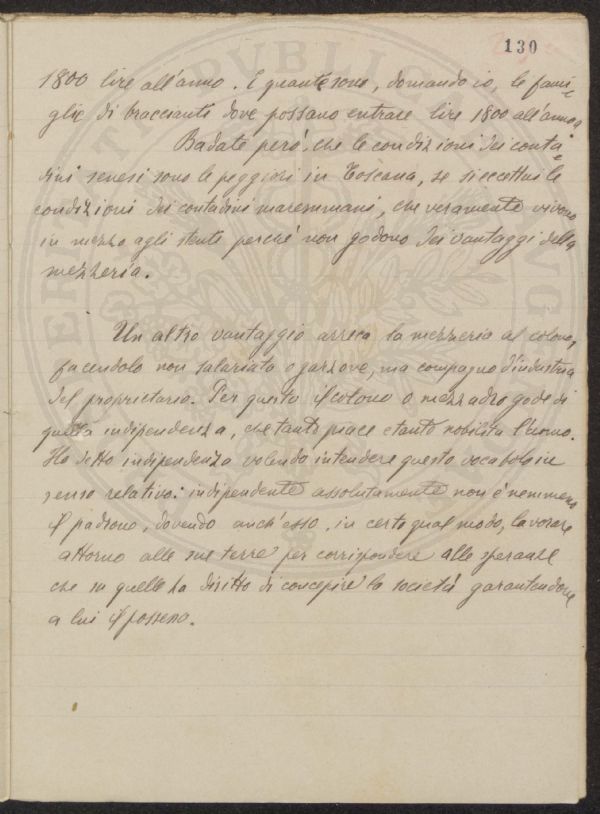 130
1800 lire all'anno. E quante sono, domando io, le fami=
glie di braccianti dove possano entrare lire 1800 all'anno?
Badate però, che le condizioni dei conta=
dini senesi sono le peggiori in Toscana, se si eccettui le
condizioni dei contadini maremmani, che veramente vivono
in mezzo agli stenti perché non godono dei vantaggi della
mezzeria.
Un altro vantaggio arreca la mezzeria al colono,
facendolo non salariato o garzone, ma compagno d'industria
del proprietario. Per questo il colono o mezzadro gode di
quella indipendenza, che tanto piace e tanto nobilita l'uomo.
Ho detto indipendenza volendo intendere questo vocabolo in
senso relativo: indipendente assolutamente non è nemmeno
il padrone, dovendo anch'esso, in certo qual modo, lavorare
attorno alle sue terre per corrispondere alle speranze
che su quelle ha diritto di concepire la società garantendone
a lui il possesso.